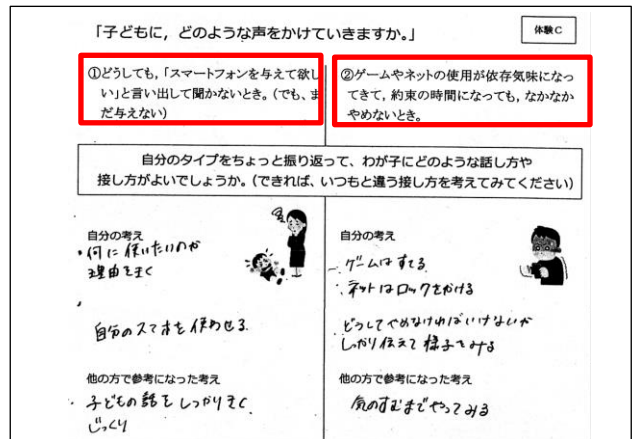 「子どもに，どのような声をかけていきますか。」
体験C
①どうしても，「スマートフォンを与えて欲し
い」と言い出して聞かないとき。（でも、ま
だ与えない）
②ゲームやネットの使用が依存気味になっ
てきて，約束の時間になっても，なかなか
やめないとき。
自分のタイプをちょっと振り返って、わが子にどのような話し方や
接し方がよいでしょうか。（できれば、いつもと違う接し方を考えてみてください）
自分の考え
・何に使いたいのか
理由をきく
自分のスマホを使わせる
他の方で参考になった考え
・子どもの話をしっかりきく
じっくり
自分の考え
・ゲームはすてる
・ネットはロックをかける
どうしてやめなければいけないか
しっかり伝えて様子をみる
他の方で参考になった考え
気のすむまでやってみる